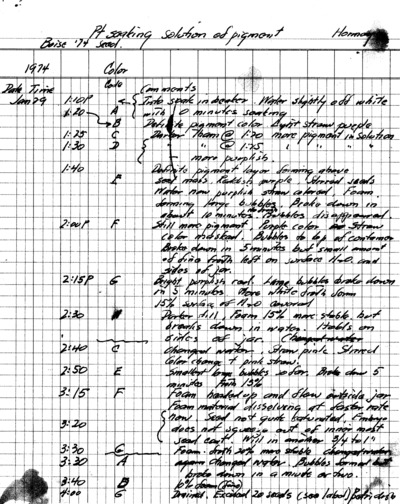 Pt soaking solution of pigment
Boise '74 Seed.
1974 Color
Date Time Code Comments
Jan 29 1:10P Into soak in beaker. Water slightly off white
1:20 A with 10 minutes soaking
B Definite pigment color. Light straw purple
1:25 C Darker than @ 1:20 more pigment in solution
1:30 D " " @ 1:25 "
more purplish.
1:40 Definite pigment layer forming above
E seed mass. Reddish purple. Stirred seeds
Water now purplish straw colored. Foam
forming large bubbles. Broke down in
about 10 minutes. Bubbles disappeared.
2:00P F Still more pigment. Purple color Straw
color masked. Bubbles to top of container
Broke down in 5 minutes but small amount
of fine froth left on surface H2O and
sides of jar.
2:15P G Bright purplish red. Large bubbles broke down
in 5 minutes. More white froth foam
15% surface of H2O covered
2:30 Darker still. Foam 15% more stable. but
breaks down in water. Holds on
sides of jar.
2:40 C Changed water. Straw pink. Stirred
Color change + pink straw.
2:50 E Smallest large bubbles so far. Broke down 5
minutes Froth 15%
3:15 F Foam heaped up and flow outside jar
Foam material dissolving at faster rate
3:20 now. Seed not quite saturated. Embryo
does not squeeze out of inner most
seed coat. Will in another 3/4 to 1"
3:30 G Foam froth 20% more stable
3:30 A again changed water. Bubbles formed but
broke down in a minute or two.
3:40 B 10% foam
4:00 G Drained. Excised 20 seeds